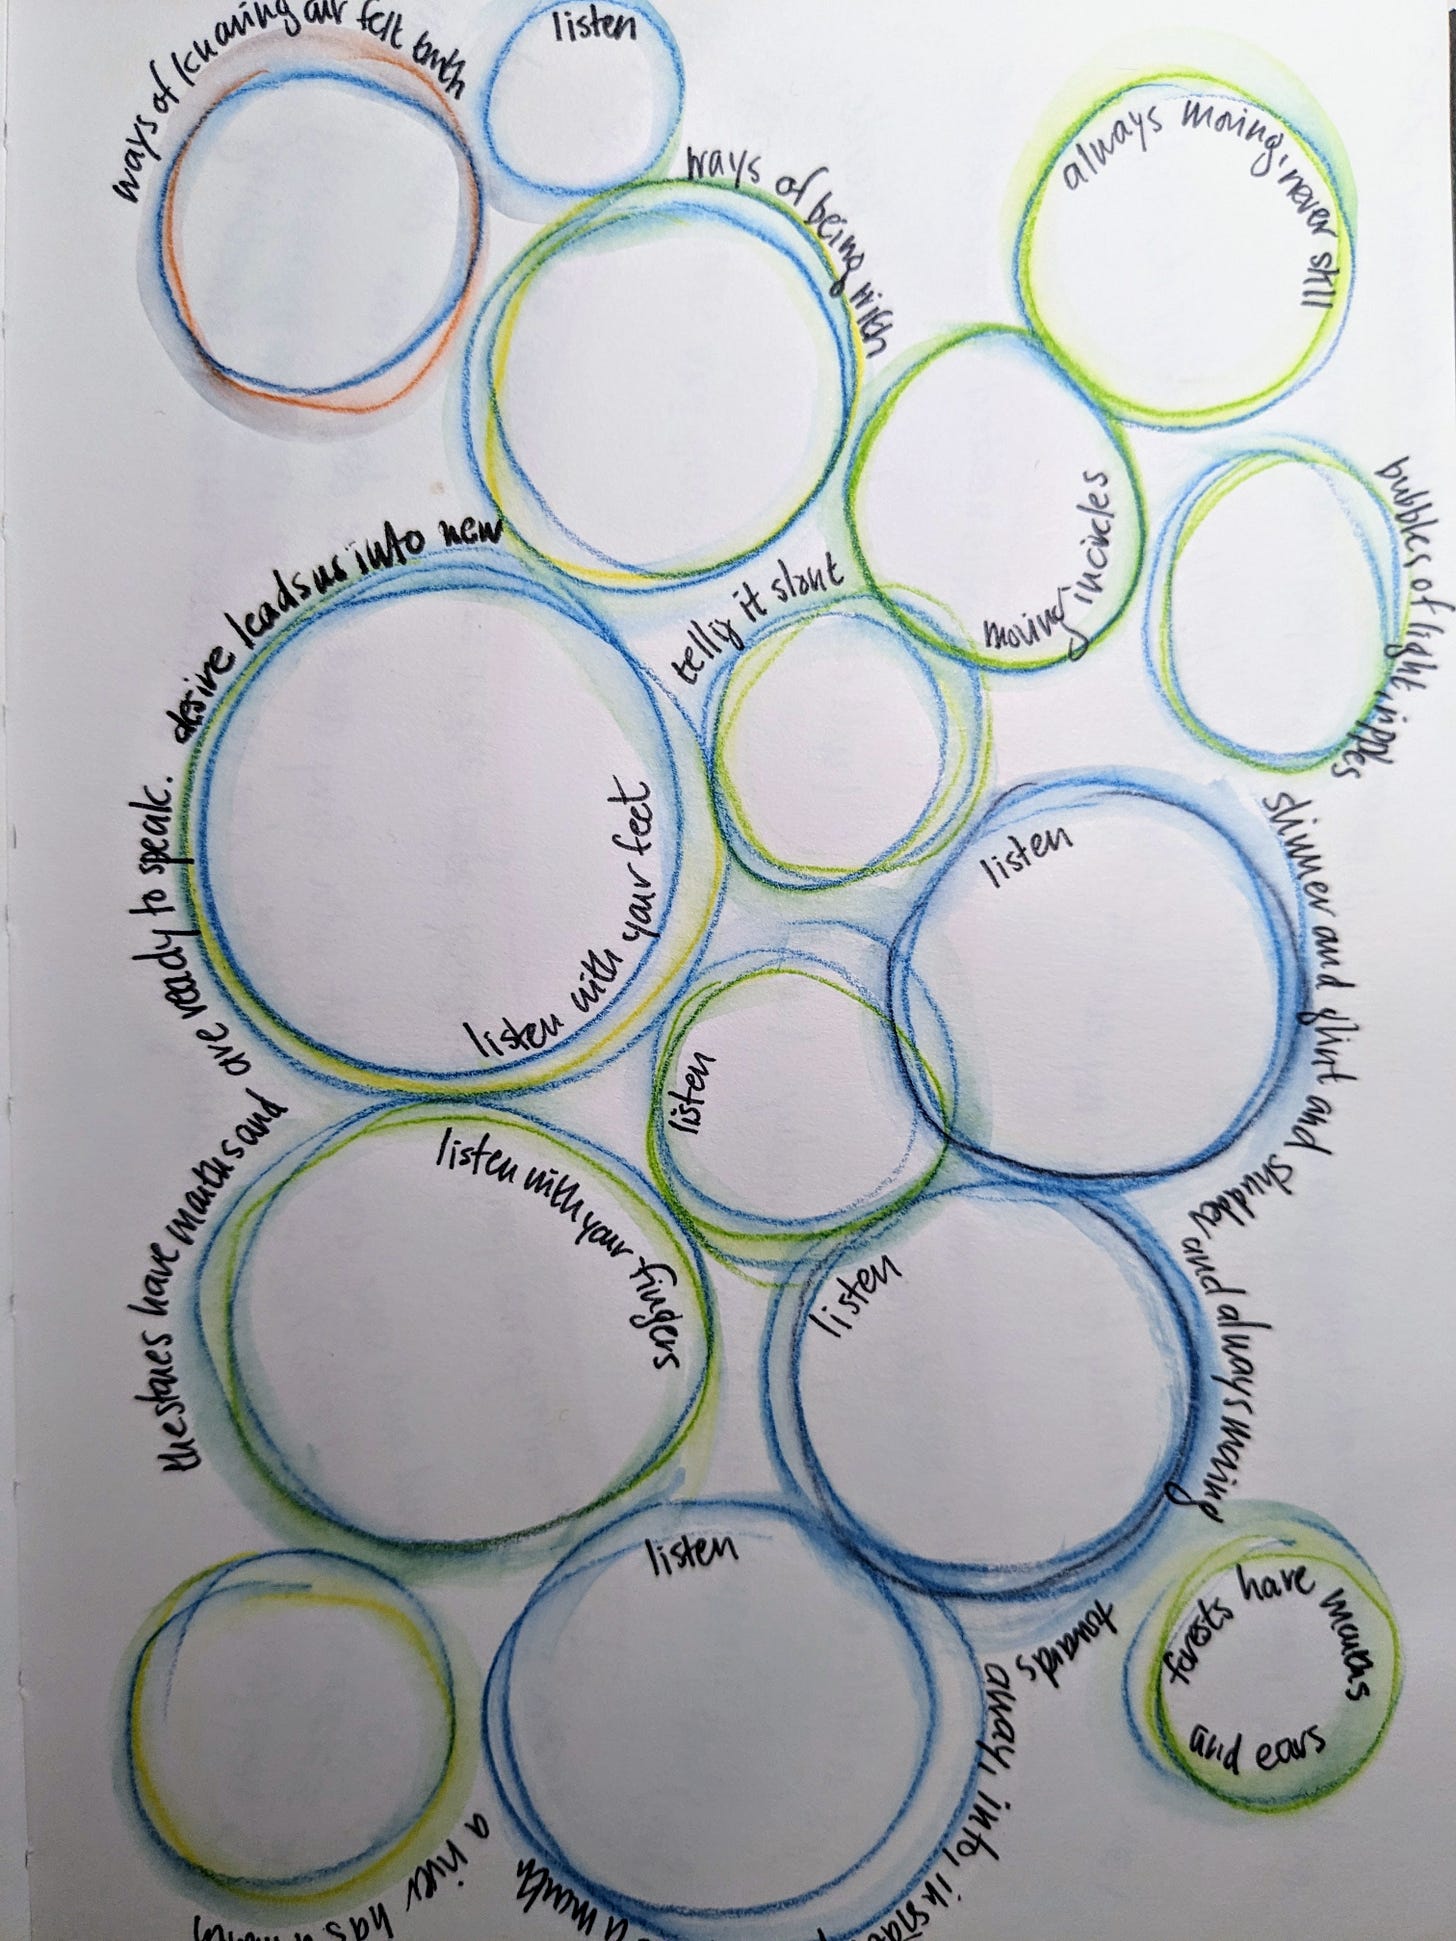 ways of knowing our felt truth
listen
ways of being with
always moving, never still
moving in circles
bubbles of light, ripples
shimmer and glint and shudder and always moving
towards
away, into, inside
telling it slant
the stones have mouths and are ready to speak. desire leads us into new
listen with your feet
listen
listen
listen with your fingers
listen
listen
forests have mouths
and ears
a river has
a mouth